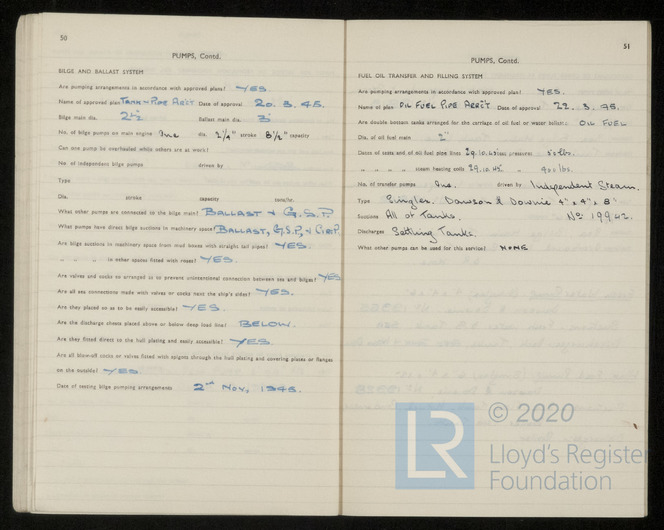 50
PUMPS, Contd.
BILGE AND BALLAST SYSTEM
Are pumping arrangements in accordance with approved plans? YES.
Name of approved plan TANK & PIPE ARR'T Date of approval 20. 3. 45.
Bilge main dia. 2½ Ballast main dia. 3"
No. of bilge pumps on main engine One dia. 2¼" stroke 8½" capacity
Can one pump be overhauled while others are at work?
No. of independent bilge pumps driven by
Type
Dia. stroke capacity tons/hr.
What other pumps are connected to the bilge main? BALLAST & G.S.P.
What pumps have direct bilge suctions in machinery space? BALLAST, G.S.P, & CIRP.
Are bilge suctions in machinery space from mud boxes with straight tail pipes? YES.
" " " in other spaces fitted with roses? YES.
Are valves and cocks so arranged as to prevent unintentional connection between sea and bilges? YES
Are all sea connections made with valves or cocks next the ship's sides? YES.
Are they placed so as to be easily accessible? YES.
Are the discharge chests placed above or below deep load line? BELOW.
Are they fitted direct to the hull plating and easily accessible? YES.
Are all blow-off cocks or valves fitted with spigots through the hull plating and covering plates or flanges
on the outside? YES
Date of testing bilge pumping arrangements 2nd Nov, 1945.
51
PUMPS, Contd.
FUEL OIL TRANSFER AND FILLING SYSTEM
Are pumping arrangements in accordance with approved plans? YES.
Name of plan OIL FUEL PIPE ARR'T Date of approval 22. 3. 45.
Are double bottom tanks arranged for the carriage of oil fuel or water ballast? OIL FUEL
Dia. of oil fuel main 2"
Dates of tests and of oil fuel pipe lines 29.10.45 test pressures 50 lbs.
" " " " steam heating coils 29.10.45 " 400 lbs.
No. of transfer pumps One. driven by Independent Steam.
Type Simplex. Dawson & Downie 4" x 4" x 8"
Suctions All oil Tanks. No 19942.
Discharges Settling Tanks.
What other pumps can be used for this service? NONE
© 2020
LR
Lloyd's Register
Foundation